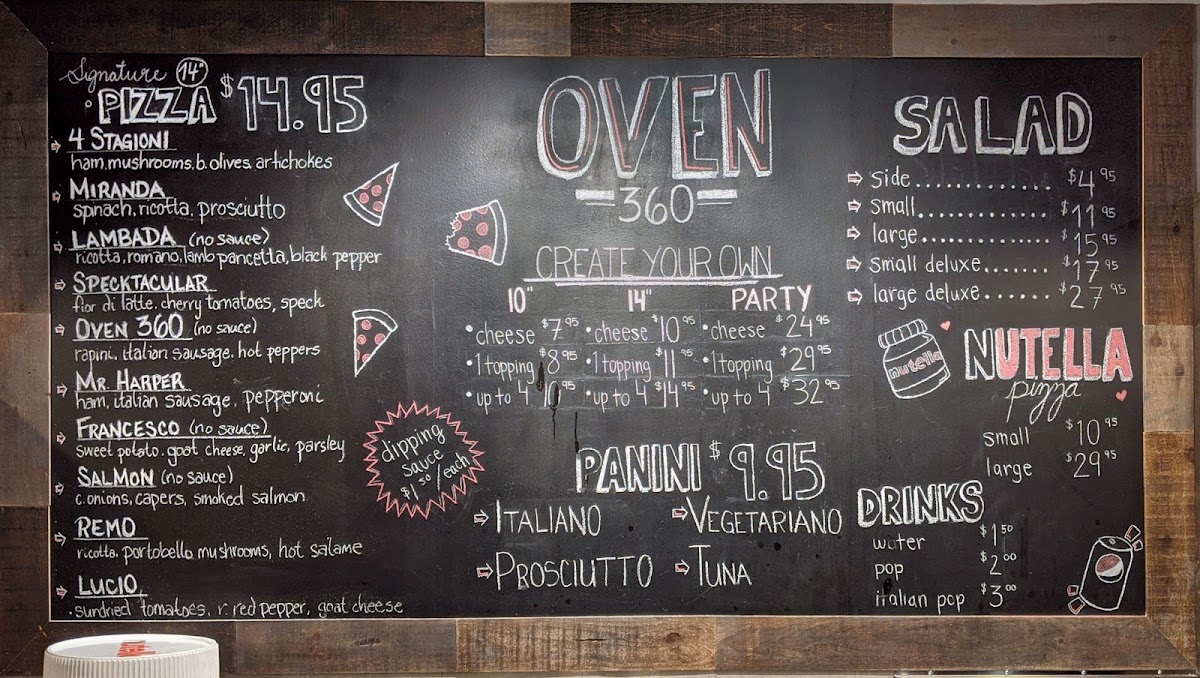 Signature 14"
PIZZA $14.95
4 STAGIONI
ham, mushrooms, b. olives, artichokes
MIRANDA
spinach, ricotta, prosciutto
LAMBADA (no sauce)
ricotta, romano, lamb pancetta, black pepper
SPECKTACULAR
fior di latte, cherry tomatoes, speck
OVEN 360 (no sauce)
rapini, italian sausage, hot peppers
MR. HARPER
ham, italian sausage, pepperoni
FRANCESCO (no sauce)
sweet potato, goat cheese, garlic, parsley
SALMON (no sauce)
c. onions, capers, smoked salmon
REMO
ricotta, portobello mushrooms, hot salame
LUCIO
sundried tomatoes, r. red pepper, goat cheese
dipping
sauce
$1.50/each
OVEN
360
CREATE YOUR OWN
10" 14" PARTY
• cheese $7.95 • cheese $10.95 • cheese $24.95
• 1 topping $8.95 • 1 topping $11.95 • 1 topping $29.95
• up to 4 10.95 • up to 4 $14.95 • up to 4 $32.95
PANINI $9.95
ITALIANO VEGETARIANO
PROSCIUTTO TUNA
SALAD
side.............. $4.95
small.............. $11.95
large.............. $15.95
small deluxe....... $17.95
large deluxe...... $27.95
nutella
NUTELLA
pizza
small $10.95
large $29.95
DRINKS
water $1.50
pop $2.00
italian pop $3.00